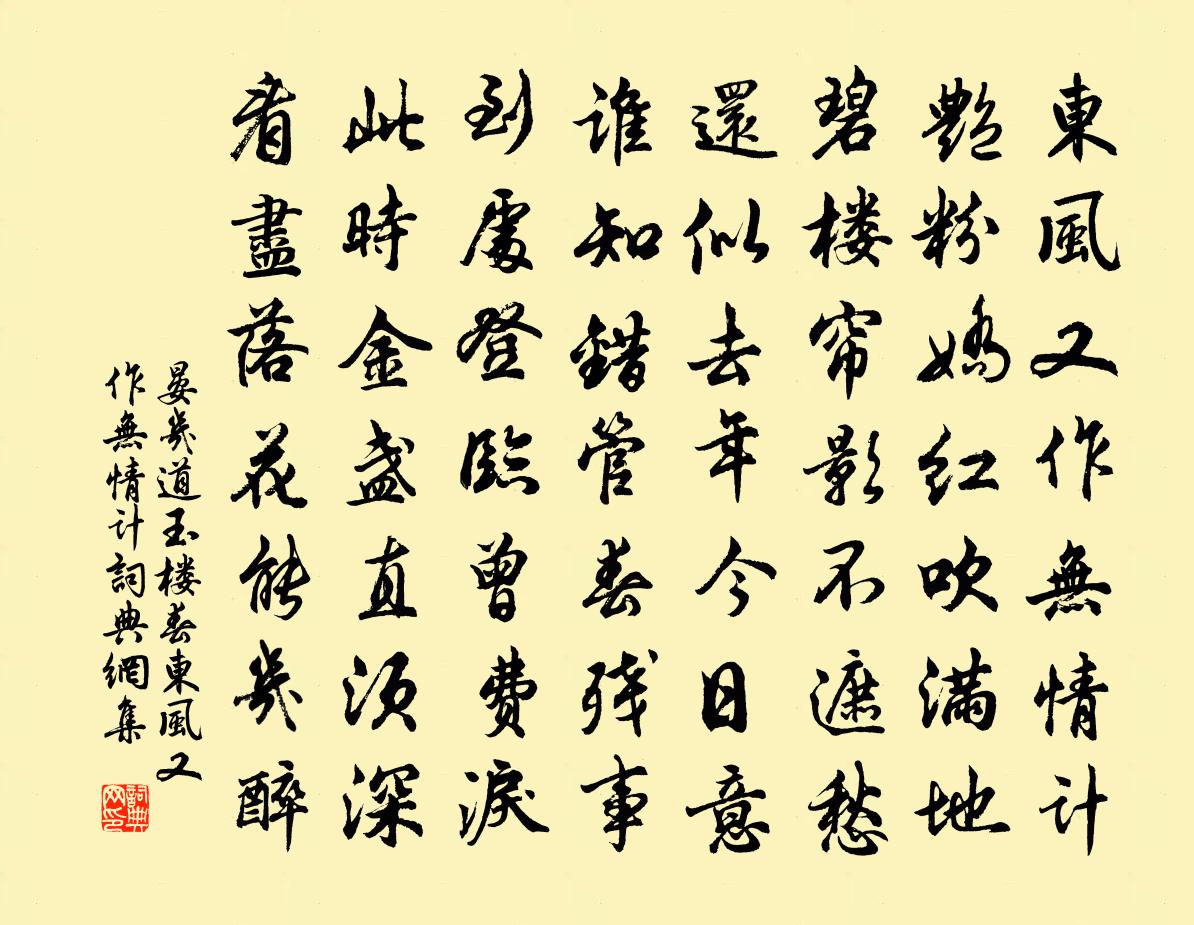 東風又作無情計
艷粉嬌紅吹滿地
碧楼帘影不遮愁
還似去年今日意
誰知錯管春残事
到處登臨曾費淚
此時金盏直須深
看盡落花能幾醉
晏幾道玉楼春東風又
作無情计詞典網集
詞典
网印